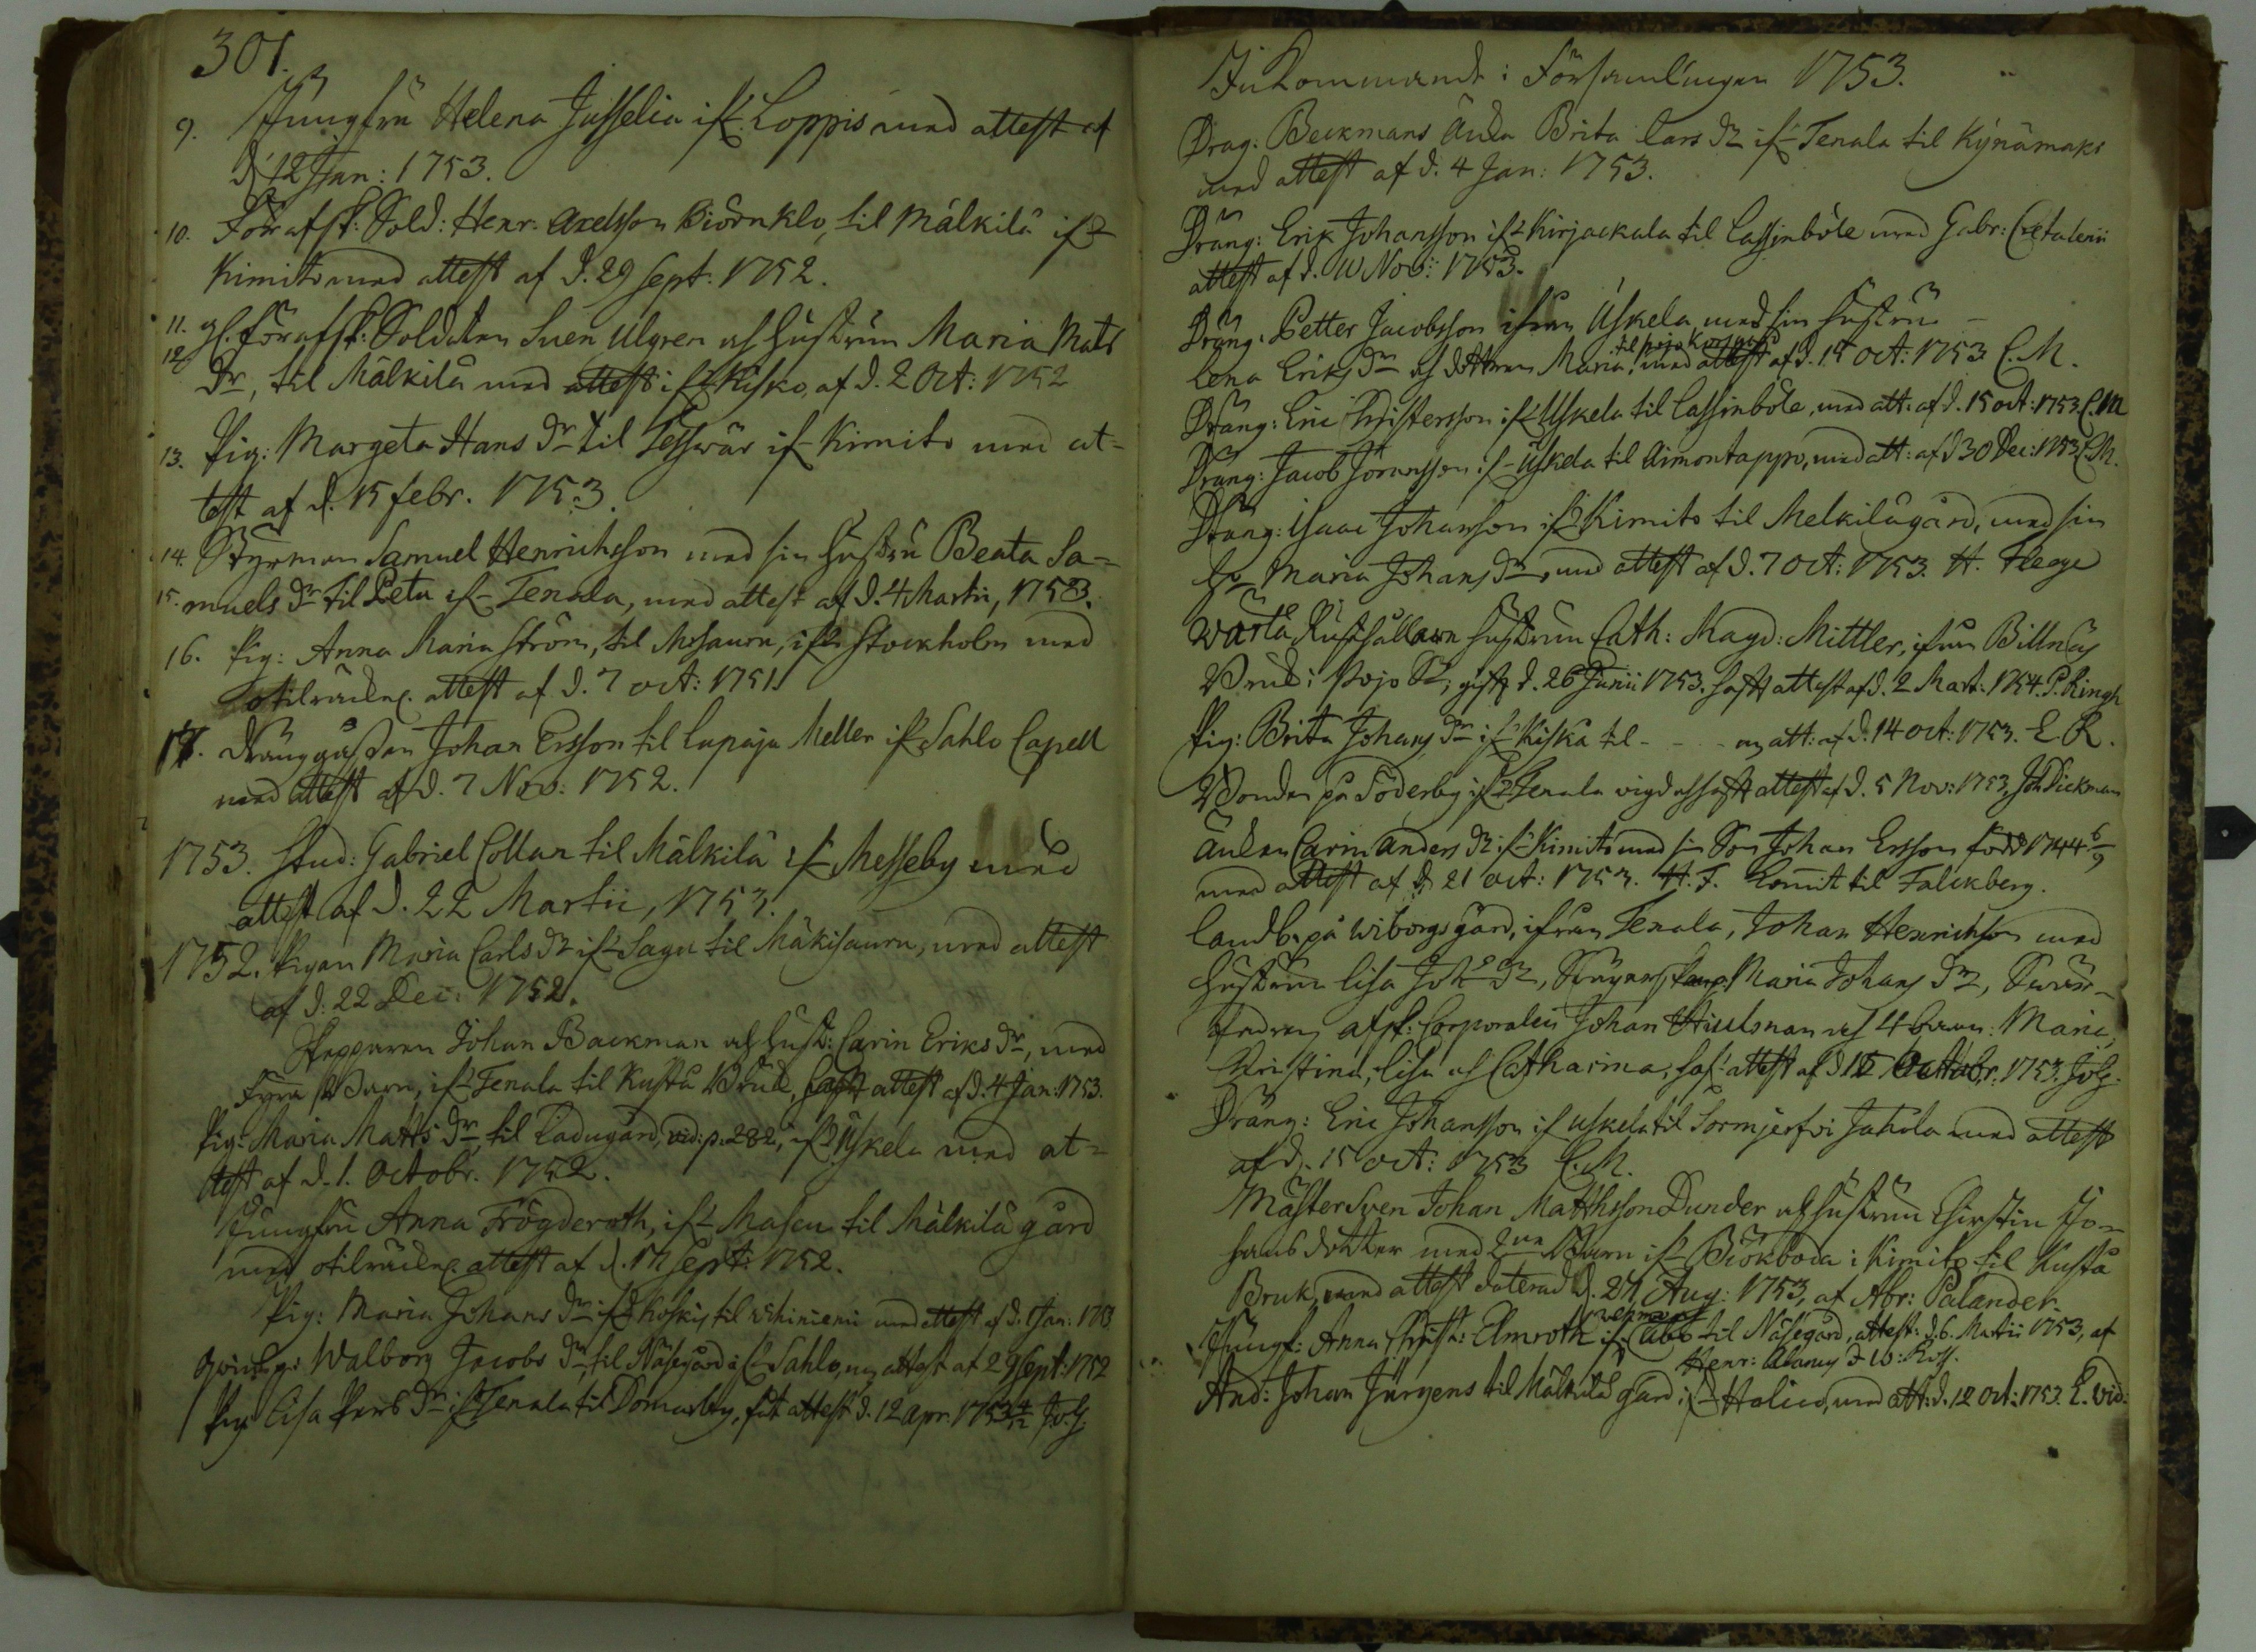 301.
9. Jungfru Helena Jusselia ifr. Loppis med attest af
d. 12 Jan: 1753.
10. Förafsk: Sold: Henr. Axelsson Biörnklo, til Målkilä ifr
Kimito med attest af d. 29 Sept. 1752.
11. gl. förafsk: Soldaten Sven Ulgren och hustrun Maria Mats
12. Dr, til Målkilä med attest ifr Kisko, af d. 2 Oct: 1752
13. Pig: Margeta Hans Dr til Tesswär ifr Kimito med at-
test af d. 15 febr. 1753.
14. Styrman Samuel Henrichsson med sin hustru Beata Sa-
15. muels Dr til Peta ifr Tenala, med attest af d. 4 Martii, 1753.
16. Pig: Anna Maria Ström, til, ifr Stockholm med
otilräckl. attest af d. 7 oct: 1751.
17. Dräng gåssen Johan Ersson til Lapaja Meller ifr Sahlo Capell
med attest af d. 7 Nov: 1752.
1753. Stud: Gabriel Collan til Målkilä ifr Messeby med
attest af d. 22 Martii, 1753.
1752. Pigan Maria Carls Dr ifr Sagu til Mäkisauru, med attest
af d. 22 Dec: 1752.
Johan Backman och hust: Carin Eriks Dr, med
Fyra Barn, ifr Tenala til Kusta Bruk, haft attest af d. 4 Jan: 1753.
Pig: Maria Matts Dr, til Ladugård, vid: p. 282, ifr Uskela med at-
test af d. 1. Octobr. 1752.
Jungfru Anna Frögderoth, ifr Mascu til Målkilä gård
med otilräckl. attest af d. 17 Sept: 1752.
Pig: Maria Johans Dr ifr Koskis til med attest af d. Jan: 1753
Qvinsp: Walborg Jacobs Dr, til Näsegård ifr Sahlo, attest af 29 Sept: 1752
Pig: Lisa Pers Dr ifr Tenala til Domarby, fåt attest d. 12 apr. 1753
Inkommande i Församlingen 1753.
Drag: Beckmans änka Brita Lars Dr ifr Tenala til Kynämaks
med attest af d. 4 Jan: 1753.
Dräng: Erik Johansson ifr Kirjackala til Lassinböle med Gabr:
attest af d. 10 Nov: 1753.
Dräng: Petter Jacobsson ifrån Uskela, med sin hustru –
til pojo
Lena Eriks Dr och dottren Maria, med attest af d. 15 oct: 1753 C.M.
Dräng: Eric Christersson ifr Uskela til Lassinböle, med att. af d. 15 oct: 1753. C.M
Dräng: Jacob Jöransson ifr Uskela til Aimontappo, med att: af d 30 Dec: 1753 C.M.
Dräng: Isaac Johansson ifr Kimito til Melkilägård, med sin
h. Maria Johans Dr, med attest af d. 7 oct: 1753. H. Flege
Wärtå Rusthållaren hustrun Cath: Magd: Mittler, ifrån Billnäs
Bruk i Pojo Sn; gift d. 26 Junii 1753. haft attest af d. 2 Mart: 1754. P. Ringh
Pig: Brita Johans Dr ifr Kiska til - - - att: af d. 14 oct: 1753. E R.
Bonden på Söderby ifr Tenala attest af d. 5 Nov: 1753, Joh Dickman
Änkan Carin Anders Dr ifr Kimito med sin Son Johan Ersson född 1744 6/9
med attest af d 21 oct: 1753. H. F. komit til Falckberg.
Landb. på Wiborgs gård, ifrån Tenala, Johan Henrichson med
hustrun Lisa Joh Dr, Maria Johans Dr, Swär-
fadren afsk: Corporalen Johan och 4 barn: Maria,
Christina, Lisa och Catharina, haf. attest af d 15 Octobr. 1753.
Dräng: Eric Johansson ifr Uskela til Sormjerfvi Jahola med attest
af d. 15 oct: 1753 C.M.
Mäster Sven Johan Matthsson Dunder och hustrun Chirstin Jo-
hansdotter med 2ne Barn ifr Biökboda i Kimito til Kusta
Bruk, med attest daterad d. 27 Aug: 1753, af Abr: Palander.
Jungf: Anna Christ: Elmroth ifr Åbo til Näsegård, attest: d. 6. Martii 1753, af
Henr:
And: Johan Jürgens til Målkilä gård ifr Halico, med att: d. 12 Oct: 1753. E. Vid: